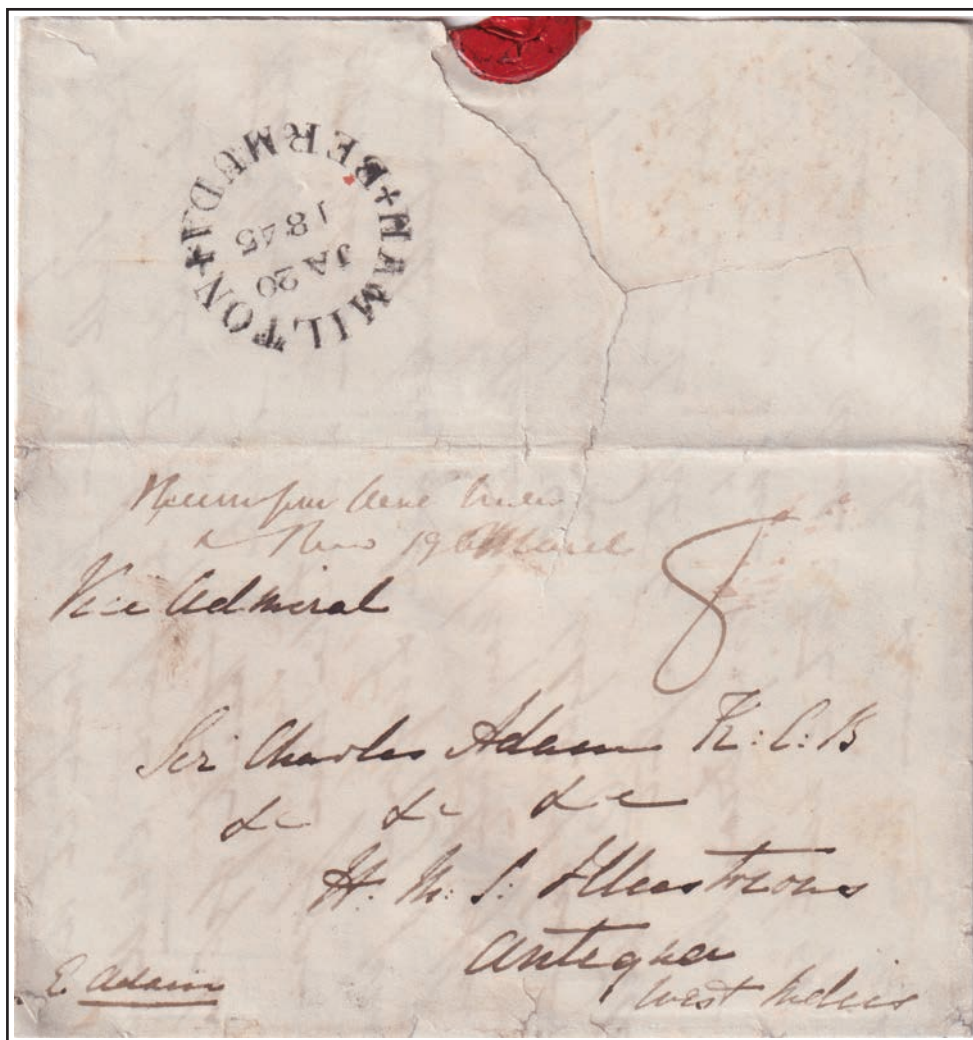 HAMILTON + BERMUDA +
JA 20
1845
19 March
8
Vice Admiral
Sir Charles Adam K:C:B
&c &c &c
H: M: S: Illustrious
Antigua
West Indies
E Adam